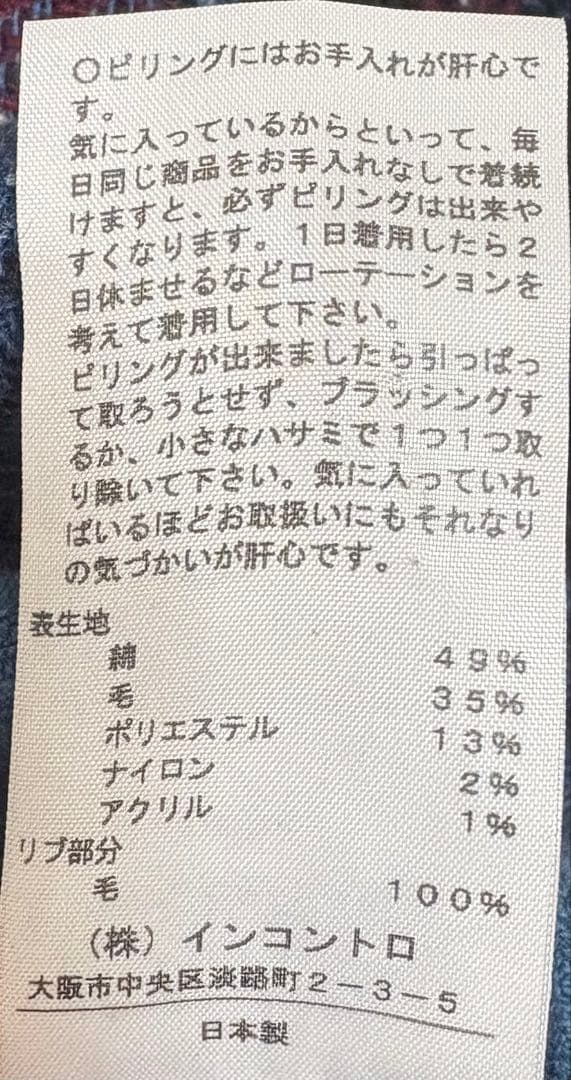 ○ピリングにはお手入れが肝心で
す。
気に入っているからといって、毎
日同じ商品をお手入れなしで着続
けますと、必ずピリングは出来や
すくなります。1日着用したら2
日休ませるなどローテーションを
考えて着用して下さい。
ピリングが出来ましたら引っぱっ
て取ろうとせず、ブラッシングす
るか、小さなハサミで1つ1つ取
り除いて下さい。気に入っていれ
ばいるほどお取扱いにもそれなり
の気づかいが肝心です。
表生地
綿 49%
毛 35%
ポリエステル 13%
ナイロン 2%
アクリル 1%
リブ部分
毛 100%
(株)インコントロ
大阪市中央区淡路町2-3-5
日本製